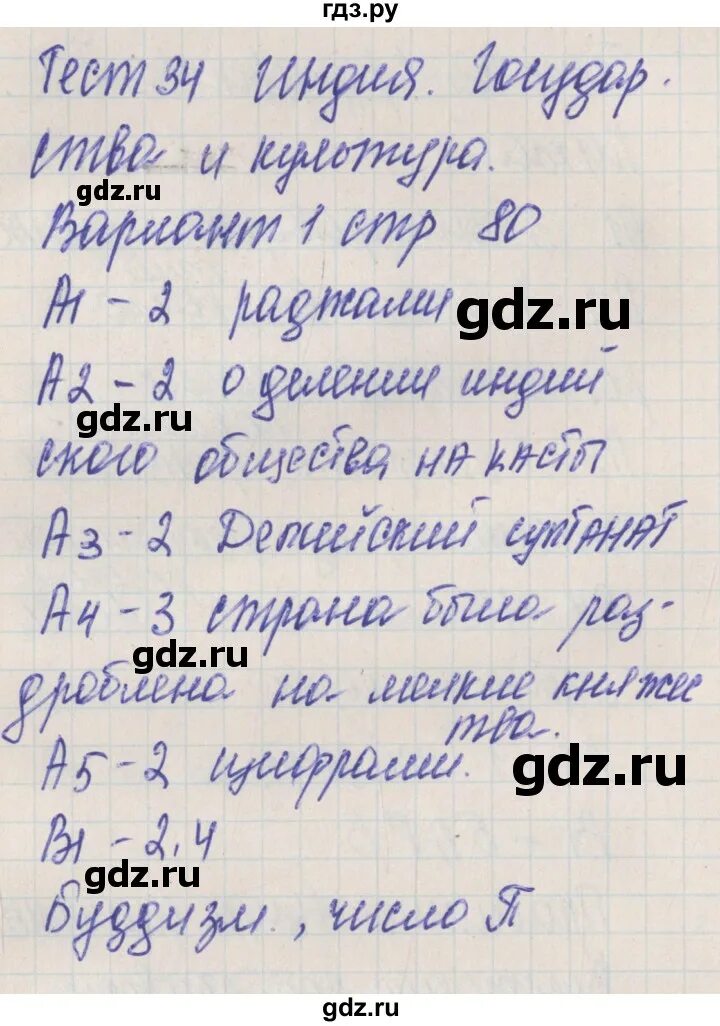 гдз.ру
Тест 34 Индия. Государ.
ства и культура.
gdz.ru
Вариант 1 стр 80
А1 - 2 раджами
gdz.ru
А2 - 2 о делении индий
gdz.ru
ского общества на касты
А3 - 2 Делийский султанат
А4 - 3 страна была раз-
gdz.ru
дроблена на мелкие княжес
тва.
А5 - 2 цифрами.
gdz.ru
В1 - 2,4
gdz.ru
Буддизм., число П
gdz.ru